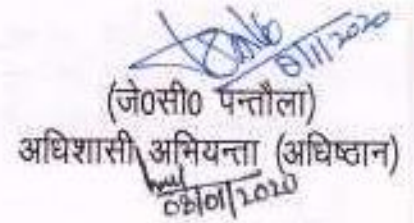 8/1/2020
(जे0सी0 पन्तौला)
अधिशासी अभियन्ता (अधिष्ठान)
08/01/2020